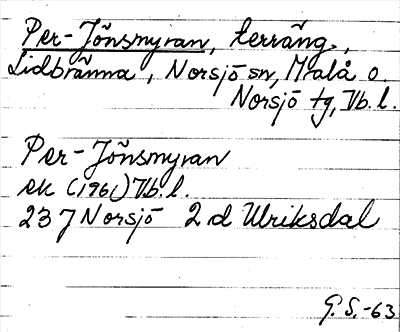 Per-Jönsmyran, terräng.,
Lidbränna, Norsjö sn, Malå o.
Norsjö tg, Vb.l.
Per-Jönsmyran
ek (1961) Vb.l.
23 J Norsjö 2 d Ulriksdal
G.S.-63